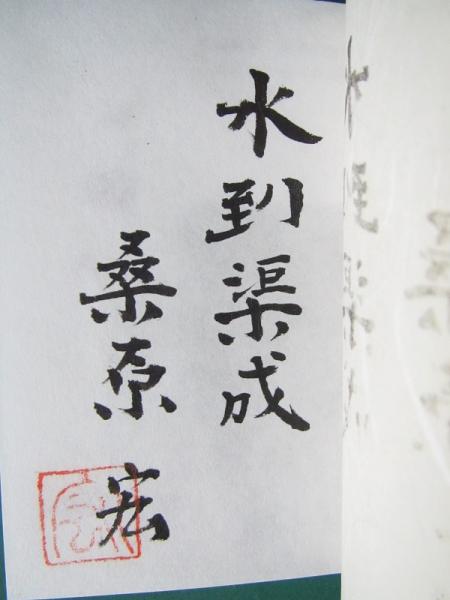 水到渠成
桑原宏